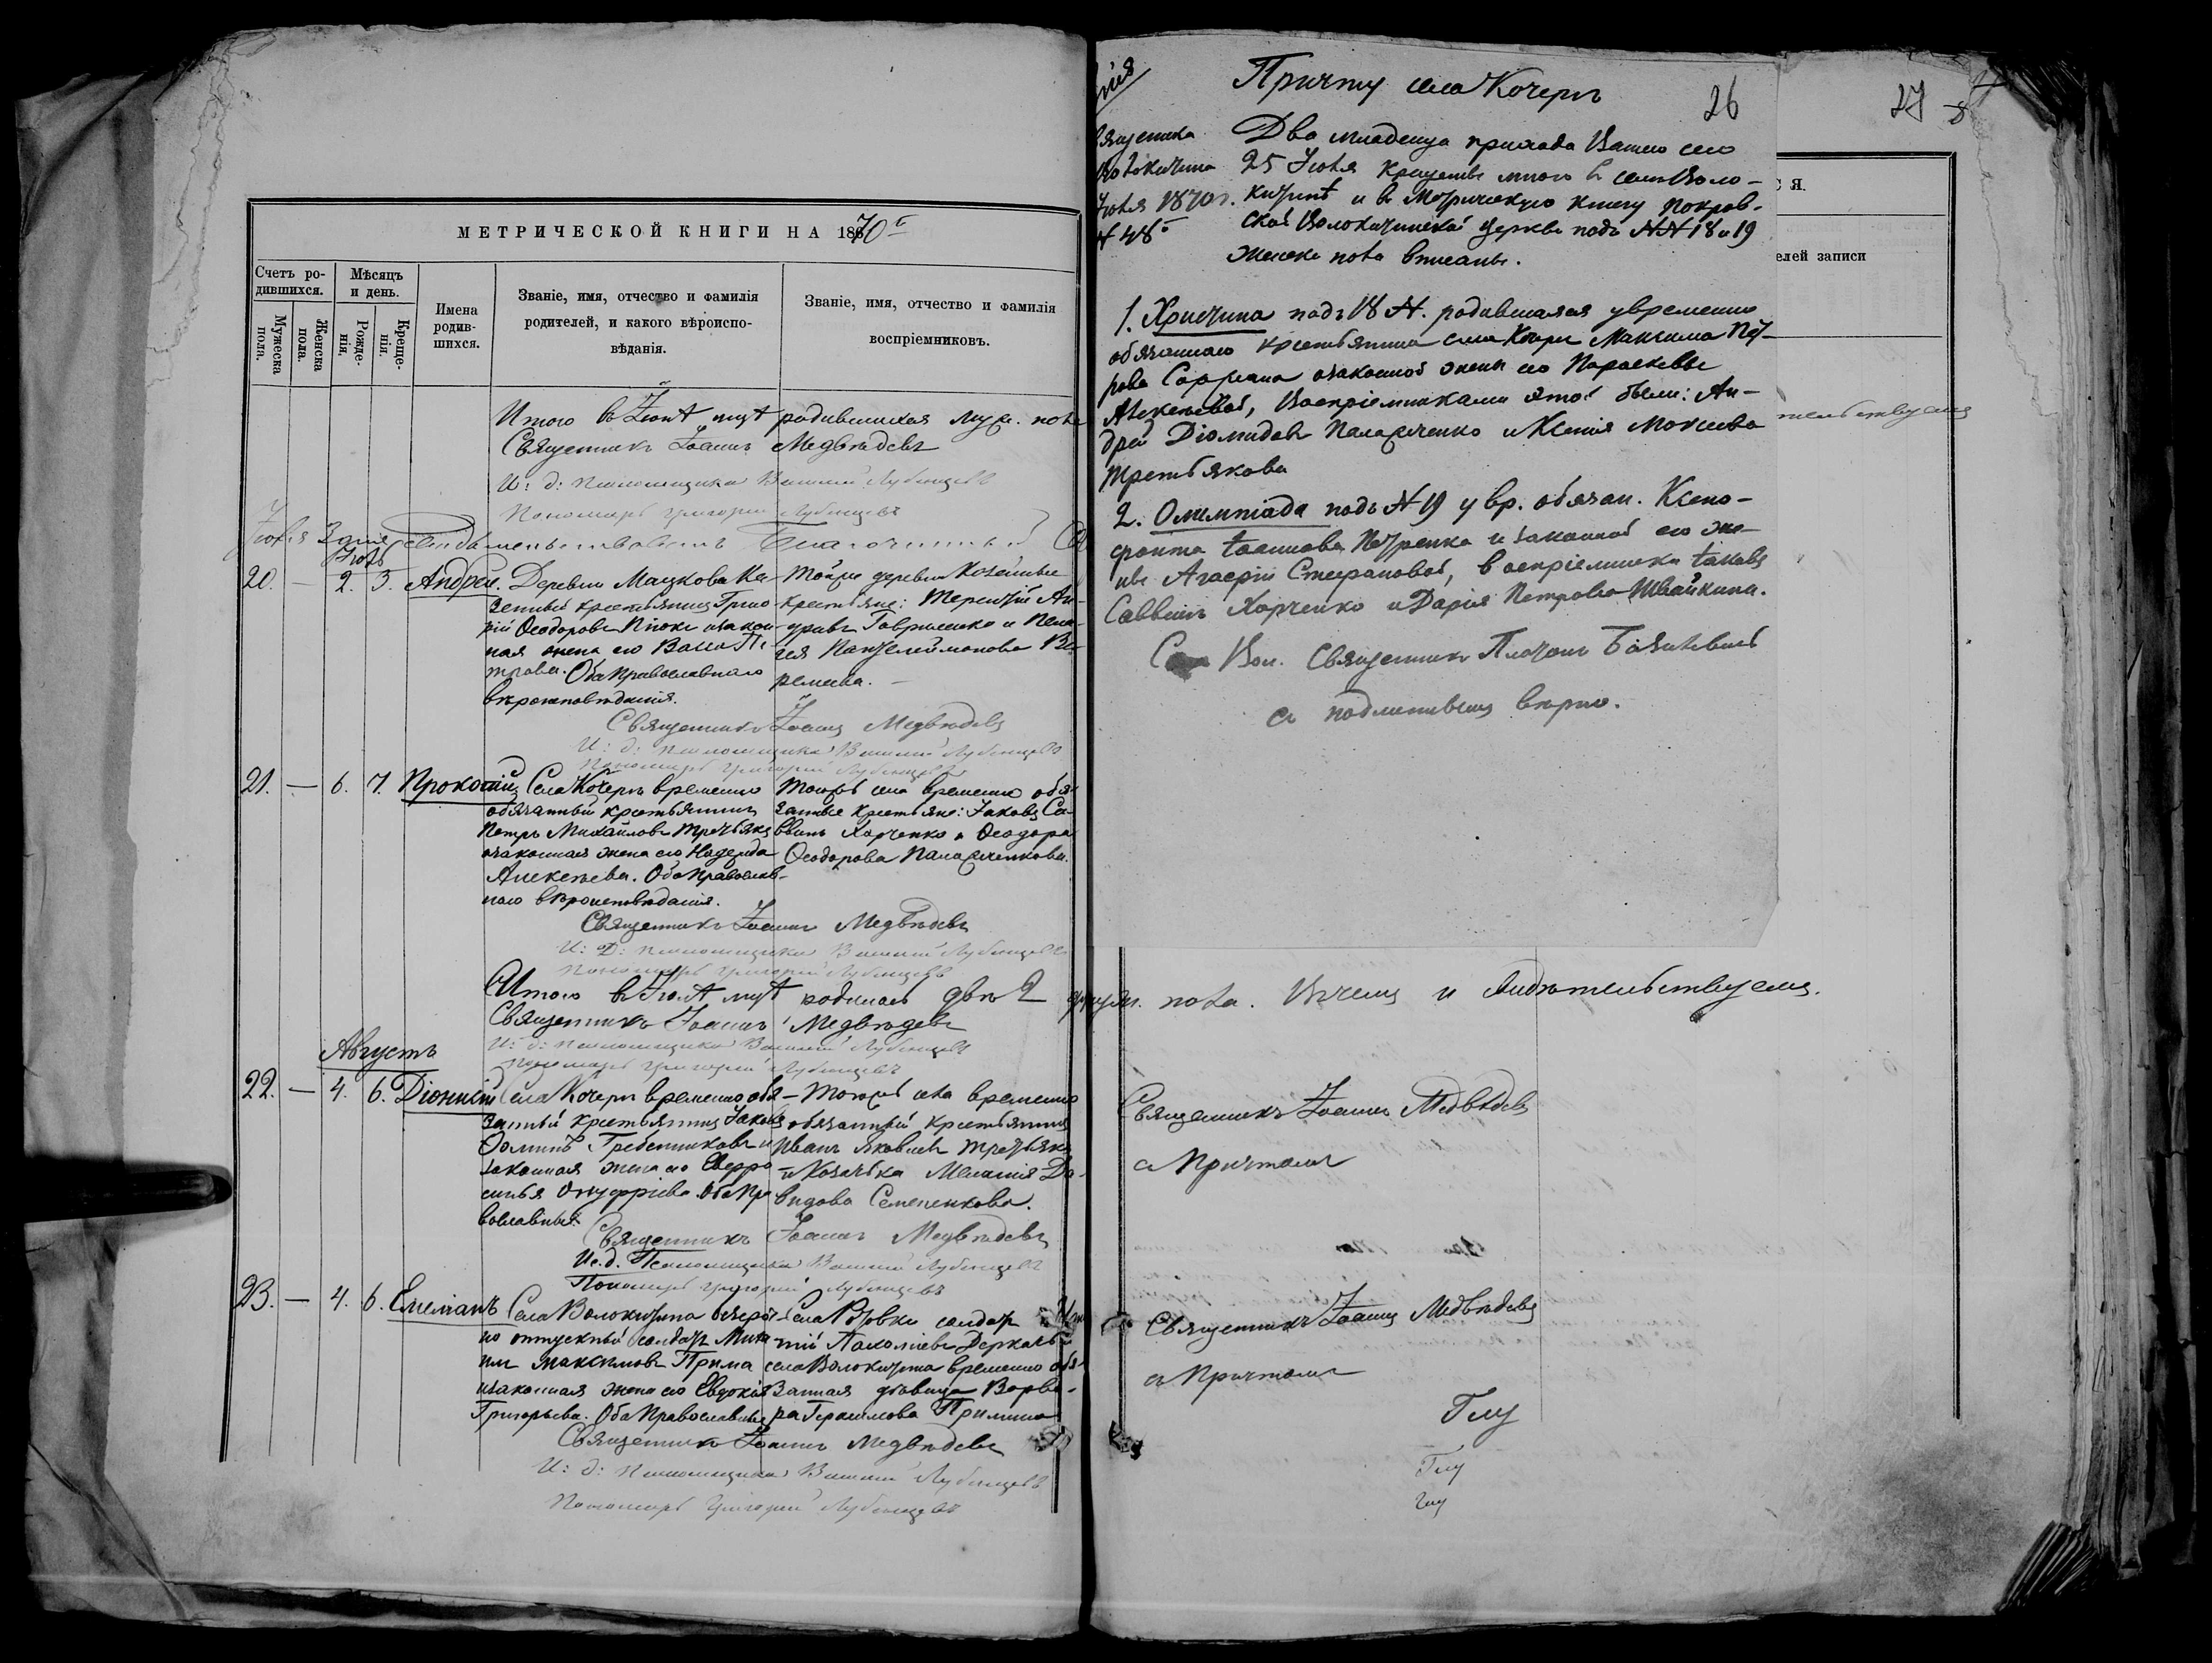 МЕТРИЧЕСКОЙ КНИГИ НА 1870 г
Счетъ ро-
дившихся.
Мѣсяцъ
и день.
Мужеска
пола.
Женска
пола.
Рожде-
нія.
Креще-
нія.
Имена
родив-
шихся.
Званіе, имя, отчество и фамилія
родителей, и какого вѣроиспо-
вѣданія.
Званіе, имя, отчество и фамилія
воспріемниковъ.
Итого въ Іюнѣ родившихся муж. пола
Священникъ Іоаннъ Медвѣдевъ
И: д: псаломщика Василій Лубенцевъ
Пономарь Григорій Лубенцевъ
Іюль
20. — 2. 3. Андрей.
Деревни Мацкова Ка-
зенный крестьянинъ Григо-
рій Ѳеодоровъ и закон-
ная жена его Васса Пе-
трова. Оба Православнаго
вѣроисповѣданія.
Той же деревни Козенные
крестьяне: Терентій Ан-
дреевъ Гавриленко и Пела-
гея Пантелеймонова Ве-
ремеева. —
Священникъ Іоаннъ Медвѣдевъ
И: д: псаломщика Василій Лубенцевъ
Пономарь Григорій Лубенцевъ
21. — 6. 7. Прокопій
Села Кочергъ временно
обязанный крестьянинъ
Петръ Михайловъ Третьякъ
и законная жена его Надежда
Алексѣева. Оба Православ-
наго вѣроисповѣданія.
Тогожъ села временно обя-
занные крестьяне: Іаковъ Са-
ввинъ Харченко и Ѳеодора
Ѳеодорова Паламаренкова.
Священникъ Іоаннъ Медвѣдевъ
И: д: псаломщика Василій Лубенцевъ
Пономарь Григорій Лубенцевъ
Итого въ Іюлѣ родилось двѣ 2 муж. пола. Въ чемъ и свидѣтельствуемъ.
Священникъ Іоаннъ Медвѣдевъ
И: д: псаломщика Василій Лубенцевъ
Пономарь Григорій Лубенцевъ
Августъ
22. — 4. 6. Діонисій
Села Кочергъ временно обя-
занный крестьянинъ Іаковъ
Ѳоминъ Гребенниковъ и
законная жена его Евфро-
синья Онуфріева. Оба Пра
вославные.
Тогожъ села временно
обязанный крестьянинъ
Иванъ Яковлевъ Третьякъ
и Козачка Меланія Да-
видова Семененкова.
Священникъ Іоаннъ Медвѣдевъ
Ис. д. Псаломщика Василій Лубенцевъ
Пономарь Григорій Лубенцевъ
23. — 4. 6. Емеліанъ
Села Волокитина безсроч-
но отпускный солдатъ Миха-
илъ Максимовъ Прима
и законная жена его Евдокія
Григорьева. Оба Православные
солдатъ
села Волокитина временно обя-
занная дѣвица Варва-
ра Герасимова Примина
Священникъ Іоаннъ Медвѣдевъ
И: д: псаломщика Василій Лубенцевъ
Пономарь Григорій Лубенцевъ
Причту села Кочергъ
26
27
Священника
Волокитина
Іюля 1870 г.
№ 48
Два младенца прихода Вашего села
25 Іюля крещены мною въ селѣ Воло-
китинѣ и въ Метрическую книгу Покров-
ской Волокитинской церкви подъ №№ 18 и 19
женска пола вписаны.
1. Христина подъ 18 №. родившаяся у временно
обязаннаго крестьянина села Кочергъ Максима Пет-
рова и законной жены его Параскевы
Алексѣевой, Воспріемниками этой были: Ан-
дрей Діомидовъ Паламаренко и Ксенія Мокіева
Третьякова
2. Олимпіада подъ № 19 у вр. обязан. Ксено-
фонта Іоаннова Петренка и законной его же-
ны Агафіи Стефановой, воспріемники Іаковъ
Саввинъ Харченко и Дарія Петрова Швайкина.
Вол. Священникъ Платонъ
съ подлиннымъ вѣрно.
С Я.
елей записи
тельствуемъ
Священникъ Іоаннъ Медвѣдевъ
съ Причтомъ
Священникъ Іоаннъ Медвѣдевъ
съ Причтомъ